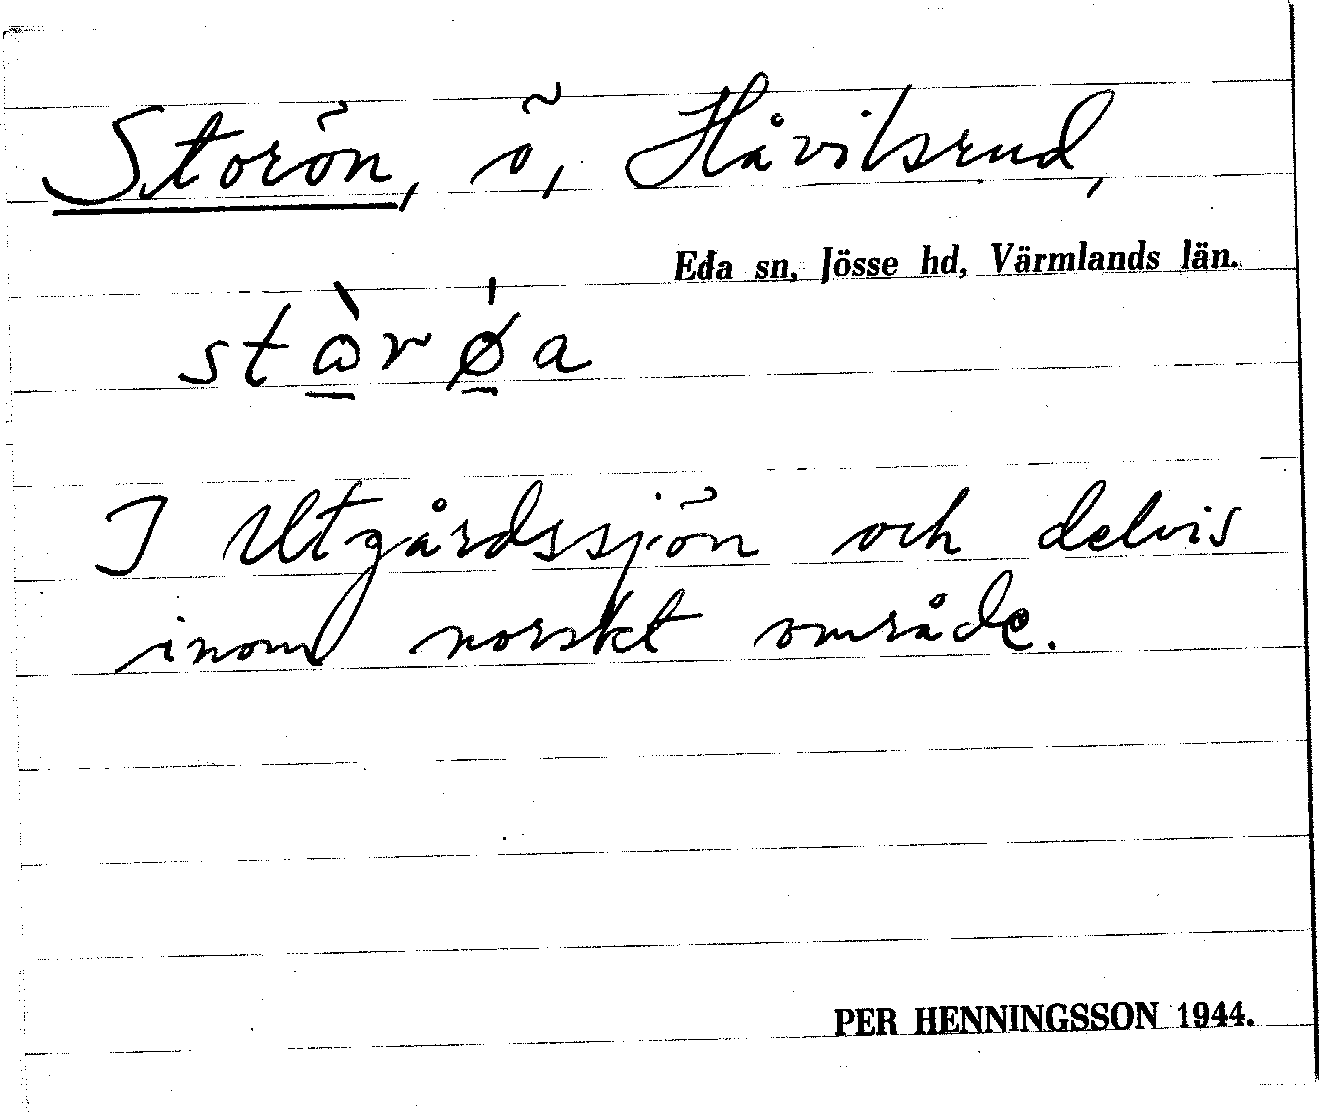 Storön, ö, Håvilsrud,
Eda sn, Jösse hd, Värmlands län.
stɷ̱̀rø̱̍a
I Utgårdssjön och delvis
inom norskt område.
PER HENNINGSSON 1944.